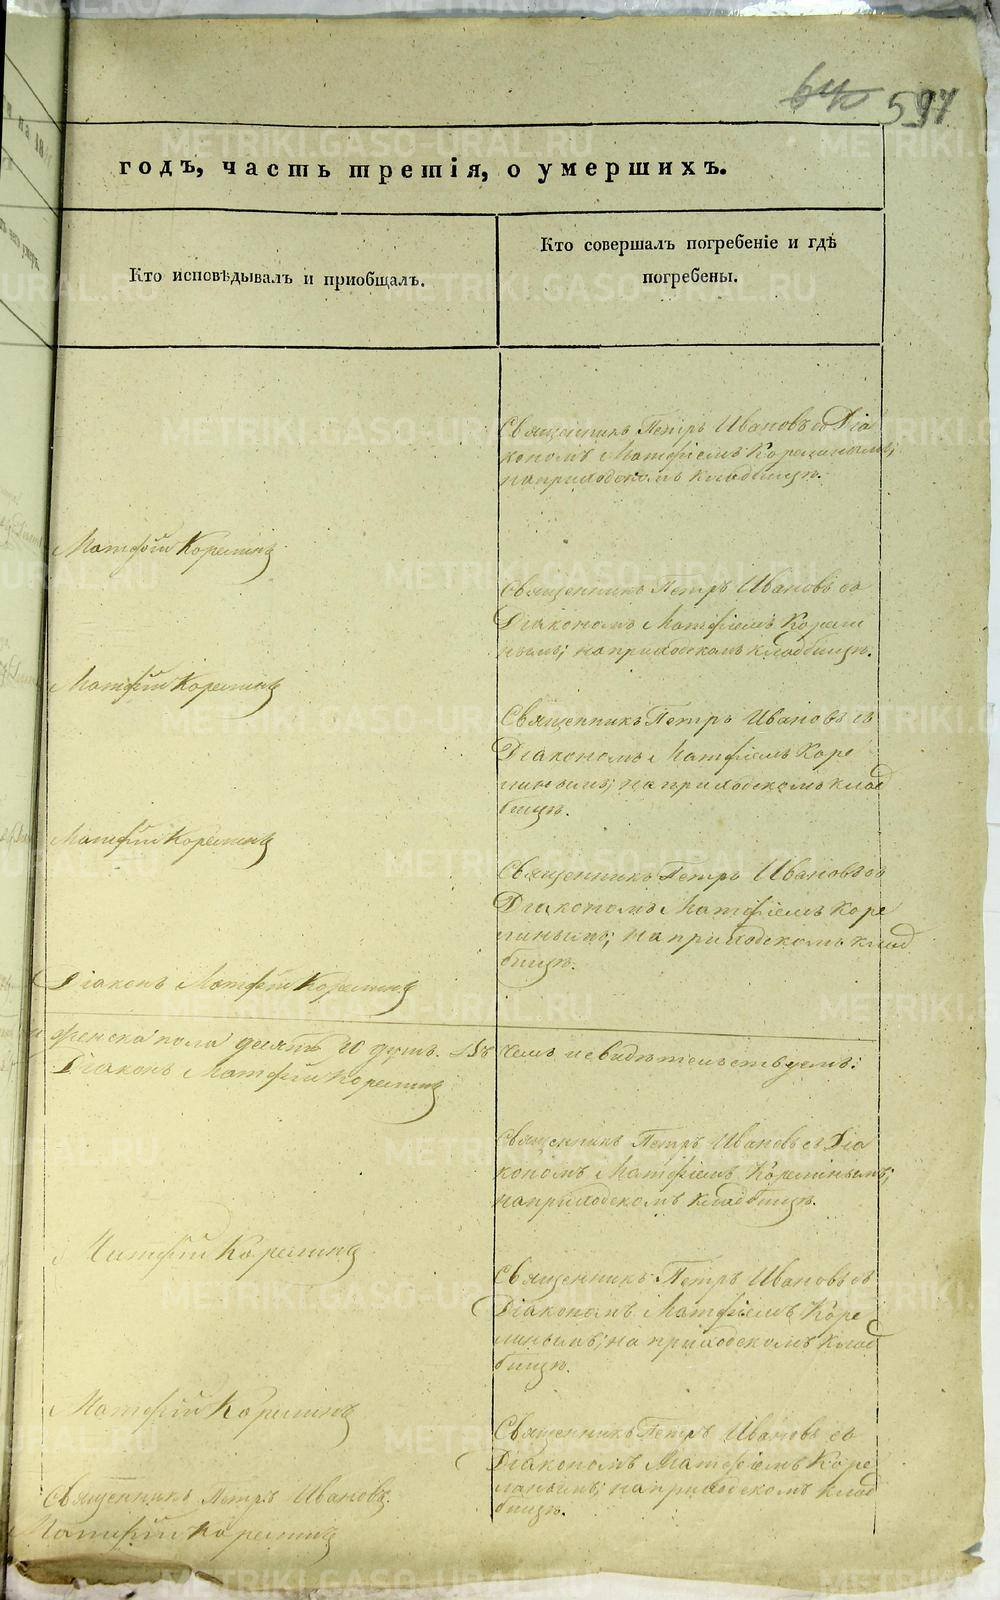 640 597
годъ, часть третія, о умершихъ.
Кто исповѣдывалъ и приобщалъ.
Кто совершалъ погребеніе и гдѣ
погребены.
Священникъ Петръ Ивановъ съ Діа
кономъ Матфіемъ Корелинымъ;
на приходскомъ кладбищѣ.
Матфій Корелинъ
Священникъ Петръ Ивановъ съ
Діакономъ Матфіемъ Корели
нымъ; на приходскомъ кладбищѣ.
Матфій Корелинъ
Священникъ Петръ Ивановъ съ
Діакономъ Матфіемъ Коре
линымъ; на приходскомъ клад
бищѣ.
Матфій Корелинъ
Священникъ Петръ Ивановъ съ
Діакономъ Матфіемъ Коре
линымъ; на приходскомъ клад
бищѣ.
Діаконъ Матфій Корелинъ
и женска пола десять 10 душъ. Въ чемъ и свидѣтельствуемъ:
Діаконъ Матфій Корелинъ
Священникъ Петръ Ивановъ съ Діа
кономъ Матфіемъ Корелинымъ;
на приходскомъ кладбищѣ.
Матфій Корелинъ
Священникъ Петръ Ивановъ съ
Діакономъ Матфіемъ Коре
линымъ; на приходскомъ клад
бищѣ.
Матфій Корелинъ
Священникъ Петръ Ивановъ съ
Діакономъ Матфіемъ Коре
линымъ; на приходскомъ клад
бищѣ.
Священникъ Петръ Ивановъ.
Матфій Корелинъ
METRIKI.GASO-URAL.RU